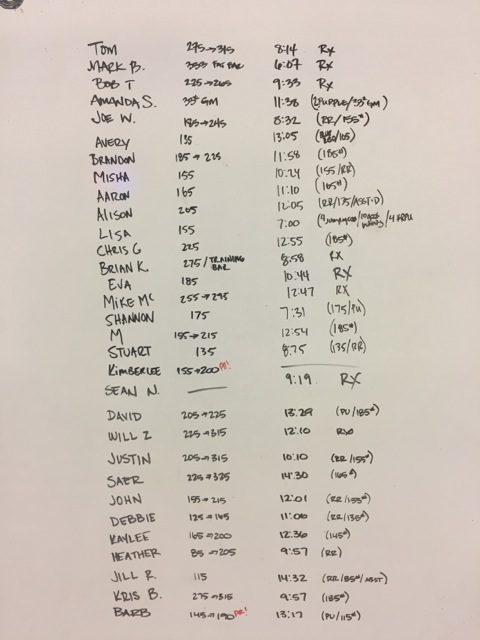 TOM 275→315 8:14 RX
MARK B. 355 FAT BAR 6:07 RX
BOB T 225→265 9:33 RX
AMANDA S. 35# GM 11:38 (2PURPLE/35# GM)
JOE W. 185→245 8:32 (RR/155#)
AVERY 135 13:05
BRANDON 185→225 11:58 (185#)
MISHA 155 10:24 (155/RR)
AARON 165 11:10 (165#)
ALISON 205 12:05 (RR/135/ASST.D)
LISA 155 7:00
CHRIS G 225 12:55 (185#)
BRIAN K. 275/TRAINING BAR 8:58 RX
EVA 185 10:44 RX
MIKE MC 255→295 12:47 RX
SHANNON 175 7:31 (175/PU)
M 155→215 12:54 (185#)
STUART 135 8:25 (135/RR)
KIMBERLEE 155→200 PR!
SEAN N. 9:19 RX
DAVID 205→225 13:29 (PU/185#)
WILL Z 225→315 12:10 RX
JUSTIN 205→315 10:10 (RR/155#)
SAER 225→325 14:30 (165#)
JOHN 155→215 12:01 (RR/155#)
DEBBIE 125→165 11:06 (RR/135#)
KAYLEE 165→200 12:36 (145#)
HEATHER 85→205 9:57 (RR)
JILL R. 115 14:32 (RR/85#/ASST)
KRIS B. 275→315 9:57 (185#)
BARB 145→190 PR! 13:17 (PU/115#)